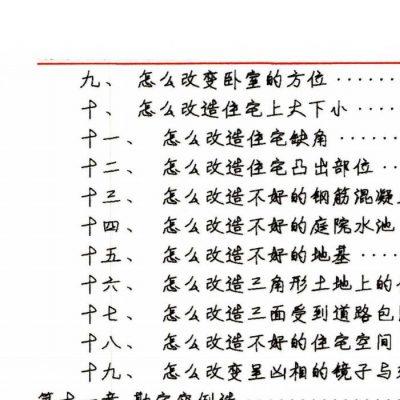 九、 怎么改变卧室的方位········
十、 怎么改造住宅上大下小·······
十一、 怎么改造住宅缺角········
十二、 怎么改造住宅凸出部位······
十三、 怎么改造不好的钢筋混凝
十四、 怎么改造不好的庭院水池
十五、 怎么改造不好的地基·······
十六、 怎么改造三角形土地上的
十七、 怎么改造三面受到道路包
十八、 怎么改造不好的住宅空间
十九、 怎么改变呈凶相的镜子与
第十一章 勘宅实例选